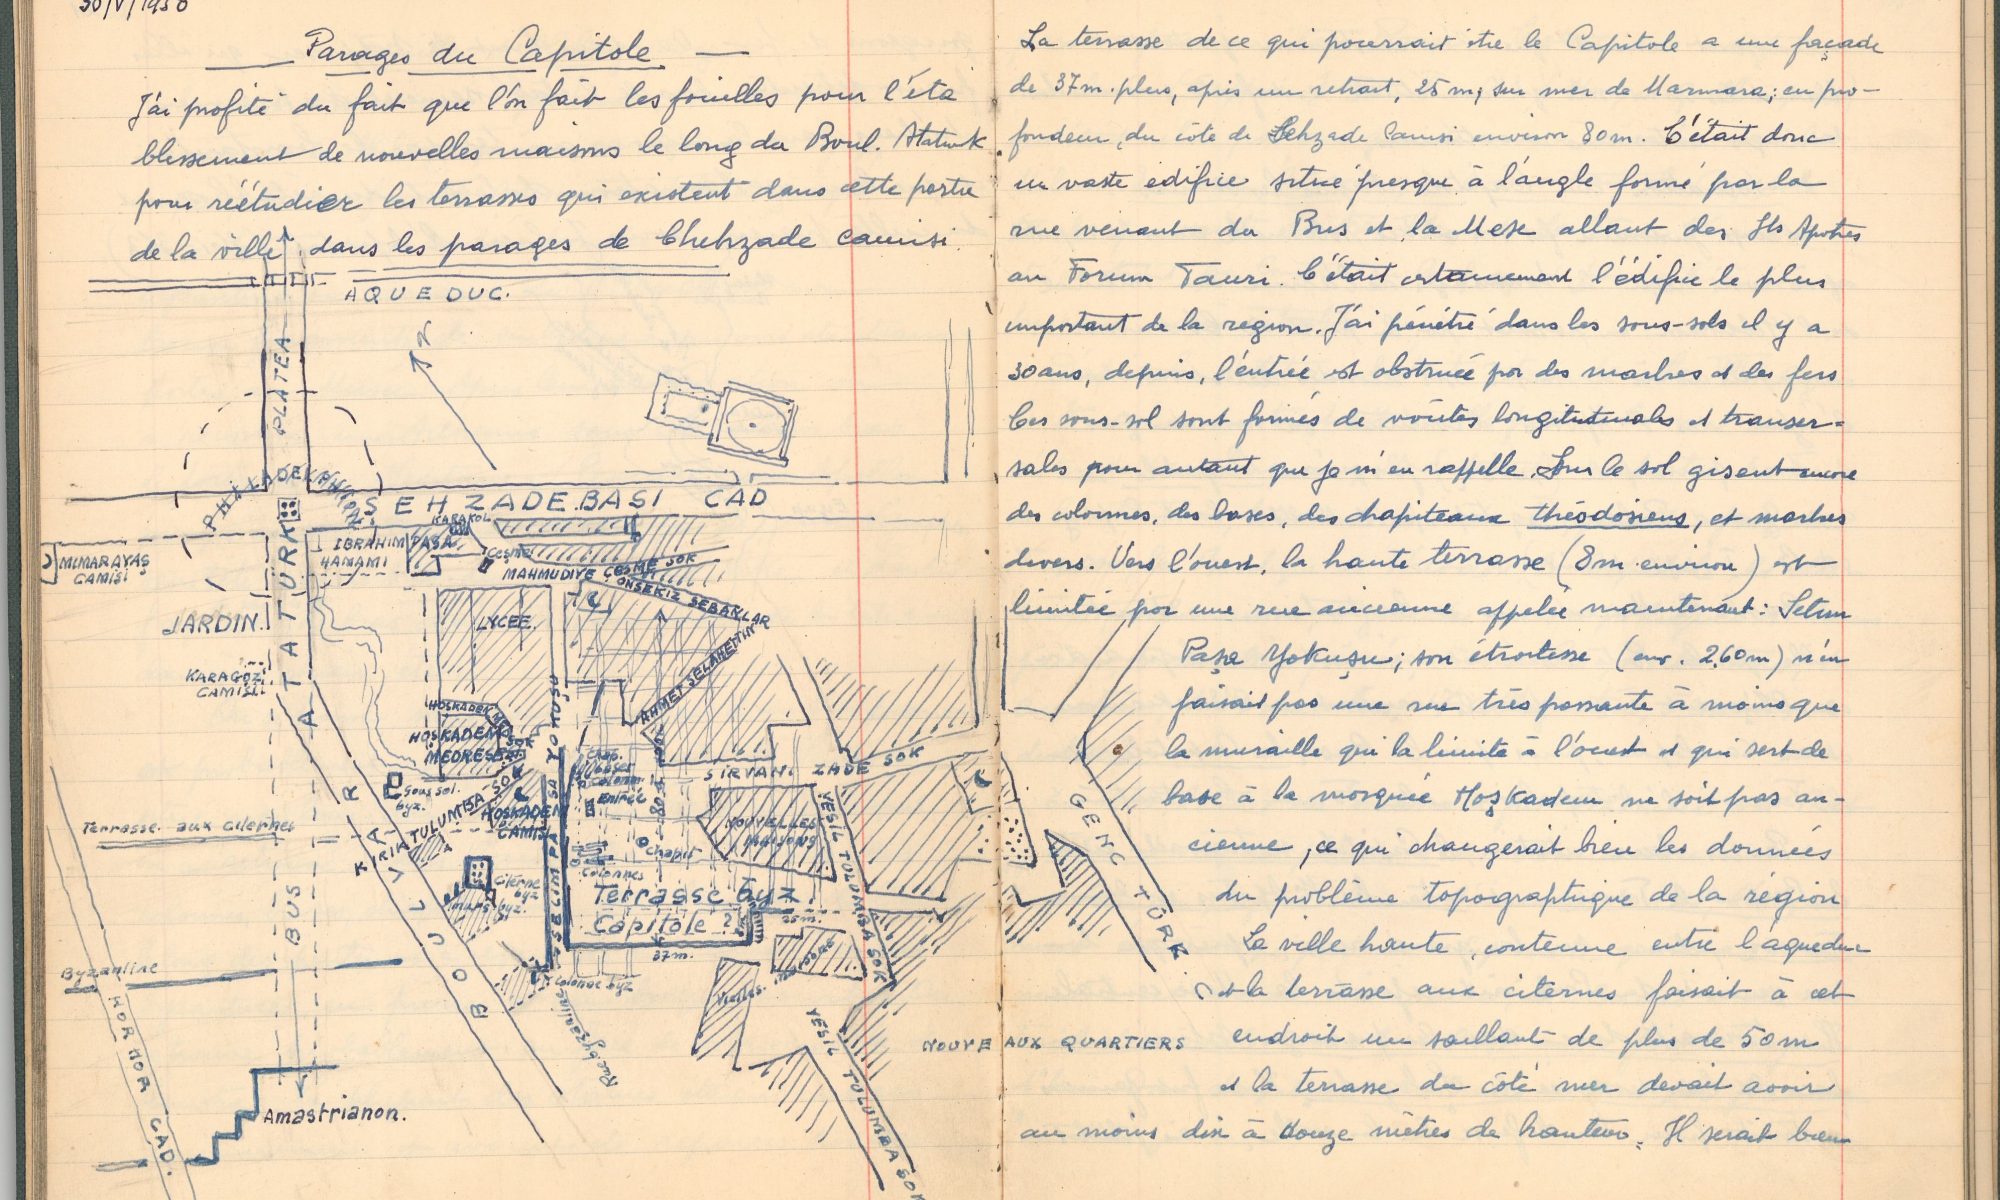 30/V/1950
Parages du Capitole
J'ai profité du fait que l'on fait les fouilles pour l'éta
blissement de nouvelles maisons le long du Boul. Ataturk
pour réétudier les terrasses qui existent dans cette partie
de la ville dans les parages de Chehzade camisi.
AQUEDUC.
N
PLATEA
PHILADELPHION
SEHZADEBASI CAD
KARAKOL
IBRAHIM PAŞA
HAMAMI
Çeşme
MIMARAYAŞ
CAMISI
MAHMUDIYE ÇEŞME SOK
ONSEKIZ SEBAKLAR
JARDIN.
ATATURK
LYCÉE
AHMET SELAHETTIN
KARAGÖZ
CAMISI
HOŞKADEM
SOK
HOŞKADEM
MEDRESESI
SELIM PAŞA YOKUŞU
Chap.
bases
Colonn.
Entrée
80m
SIRVANI ZADE SOK
Sous sol.
byz.
KIRIK TULUMBA-SOK
HOŞKADEM
CAMISI
NOUVELLES
MAISONS
YESIL TULUMBA SOK
GENÇ TÜRK
Terrasse aux citernes
Chapit
Colonnes
Citerne
byz.
murs byz.
Terrasse byz
Capitole?
25m.
37m.
BUS
BOULVAR
Byzantine
Colonne byz
Rue byzantine
Vieilles masures
YESIL TULUMBA SOK
NOUVEAUX QUARTIERS
HOR HOR CAD.
Amastrianon.
La terrasse de ce qui pourrait être le Capitole a une façade
de 37m. plus, après un retrait, 25 m; sur mer de Marmara; en pro-
fondeur, du côté de Sehzade Camisi environ 80m. C'était donc
un vaste édifice situé presque à l'angle formé par la
rue venant du Bus et la Mese allant des Sts Apotres
au Forum Tauri. C'était certainement l'édifice le plus
important de la région. J'ai pénétré dans les sous-sols il y a
30 ans, depuis, l'entrée est obstruée par des marbres et des fers
Ces sous-sol sont formés de voûtes longitutinales et transver-
sales pour autant que je m'en rappelle. Sur le sol gisent encore
des colonnes, des bases, des chapiteaux théodosiens, et marbres
divers. Vers l'ouest, la haute terrasse (8m environ) est
limitée par une rue ancienne appelée maintenant: Selim
Paşa Yokuşu; son étroitesse (env. 2,60m) n'en
faisait pas une rue très passante à moins que
la muraille qui la limite à l'ouest et qui sert de
base à la mosquée Hoşkadem ne soit pas an-
cienne, ce qui changerait bien les données
du problème topographique de la région
La ville haute, contenue entre l'aqueduc
et la terrasse aux citernes faisait à cet
endroit un saillant de plus de 50m
et la terrasse du côté mer devait avoir
au moins dix à douze mètres de hauteur. Il serait bien